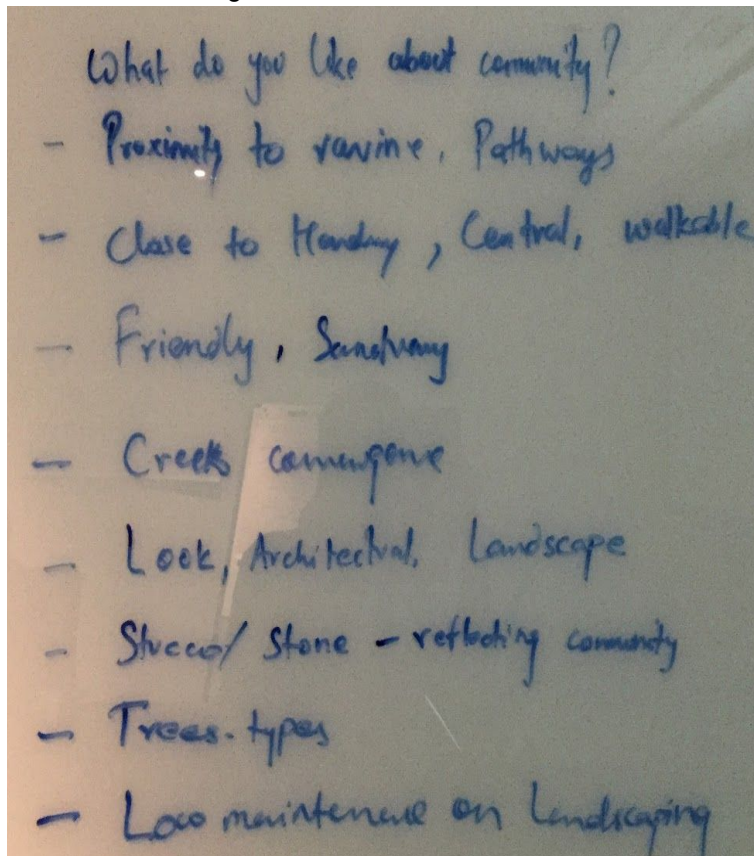 What do you like about community?
- Proximity to ravine, Pathways
- Close to , Central, walkable
- Friendly, Sanctuary
- Creeks convergence
- Look, Architectural, Landscape
- Stucco/ Stone - reflecting community
- Trees-types
- Low maintenance on Landscaping